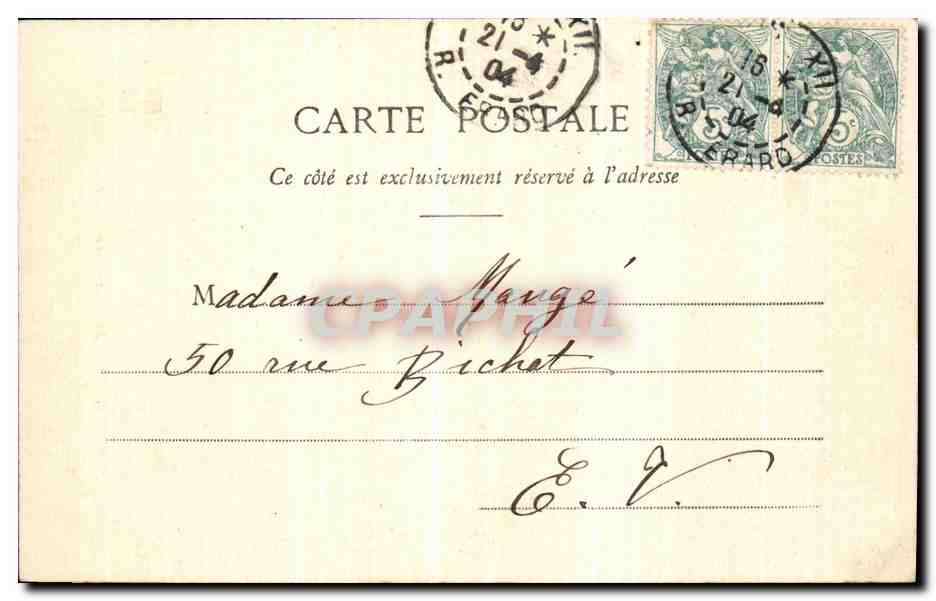 16 * XII.
21 - 4
04
R. ERARD
16 * XII
21 - 4
04
R. ERARD
5c
POSTES
CARTE POSTALE
Ce côté est exclusivement réservé à l'adresse
Madame Maugé
CPAPHIL
50 rue Bichat
E. V.